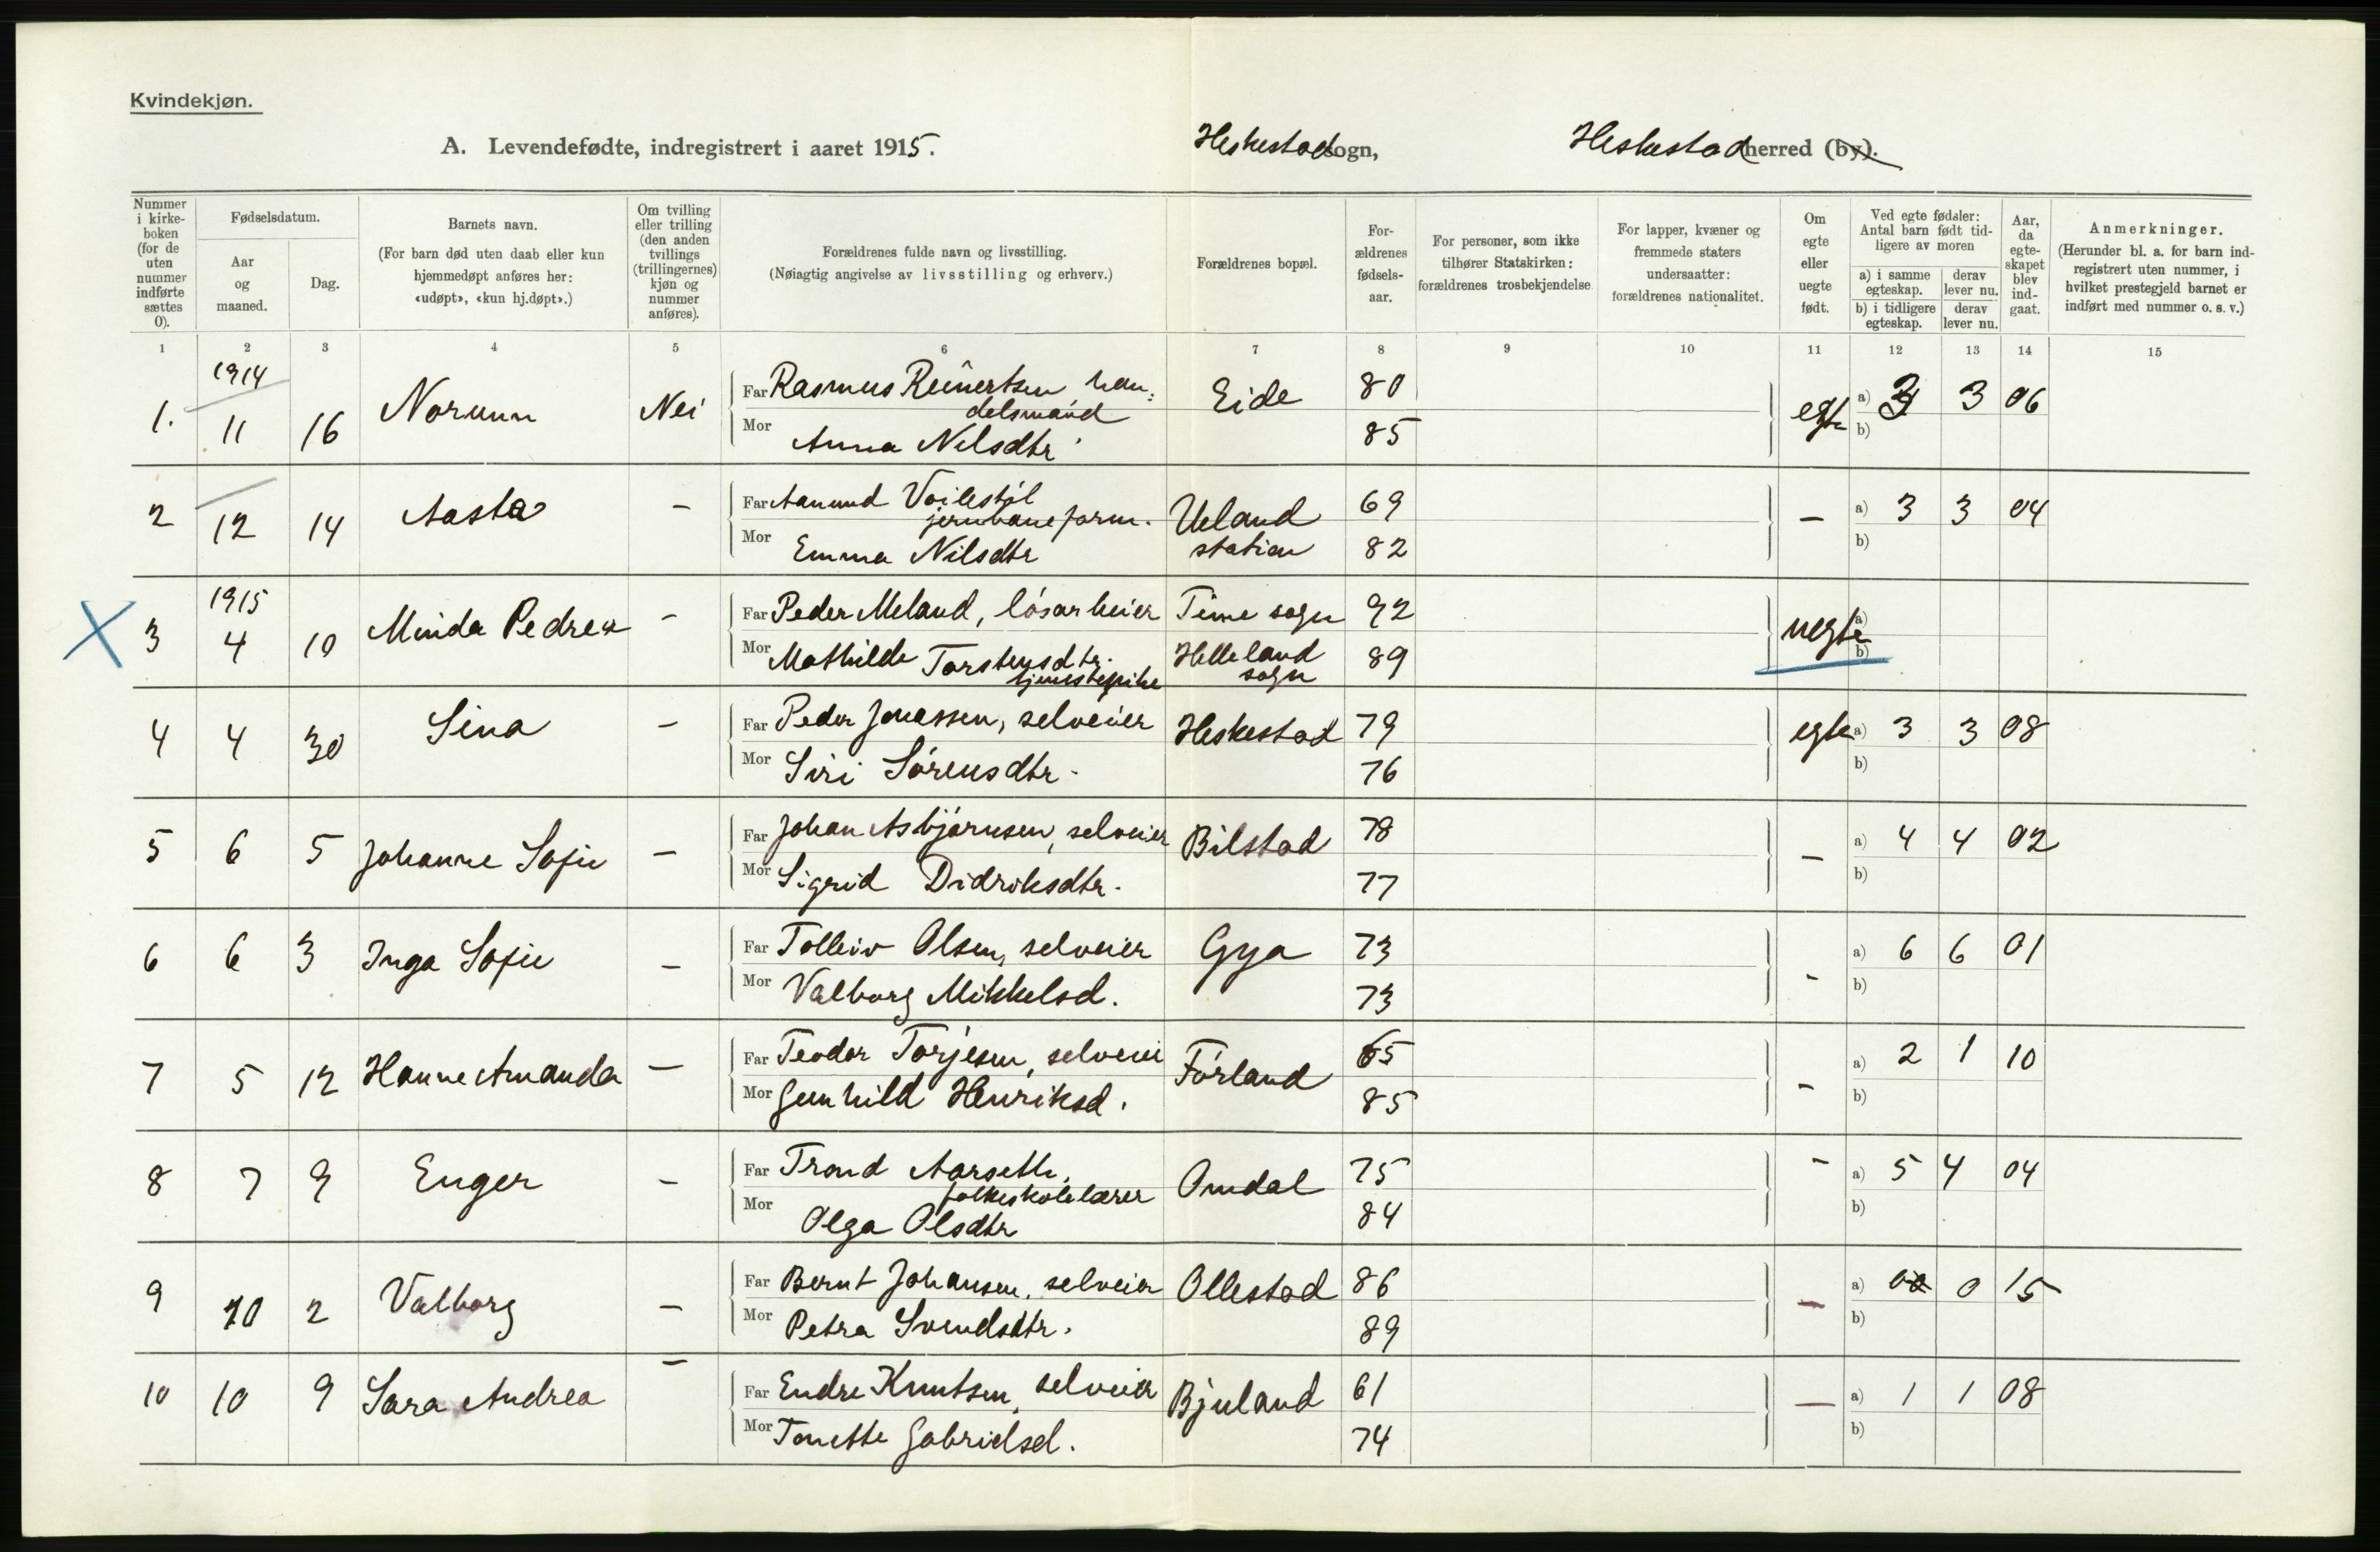 Kvindekjøn.
A. Levendefødte, indregistrert i aaret 1915. Heskestad sogn, Heskestad herred (by).
Nummer i kirkeboken (for de uten nummer indførte sættes 0).
Fødselsdatum.
Aar og maaned.
Dag.
Barnets navn.
(For barn død uten daab eller kun hjemmedøpt anføres her: «udøpt», «kun hj.døpt».)
Om tvilling eller trilling (den anden tvillings (trillingernes) kjøn og nummer anføres).
Forældrenes fulde navn og livsstilling.
(Nøiagtig angivelse av livsstilling og erhverv.)
Forældrenes bopæl.
For-ældrenes fødsels-aar.
For personer, som ikke tilhører Statskirken: forældrenes trosbekjendelse
For lapper, kvæner og fremmede staters undersaatter: forældrenes nationalitet.
Om egte eller uegte født.
Ved egte fødsler: Antal barn født tidligere av moren
a) i samme egteskap. derav lever nu.
b) i tidligere egteskap. derav lever nu.
Aar, da egteskapet blev indgaat.
Anmerkninger.
(Herunder bl. a. for barn indregistrert uten nummer, i hvilket prestegjeld barnet er indført med nummer o. s. v.)
1 2 3 4 5 6 7 8 9 10 11 12 13 14 15
1914
1. 11 16 Norunn Nei Far Rasmus Reinertsen han- Eide 80 egte a) 3 3 06
delsmand
Mor Anna Nilsdtr 85 b)
2 12 14 Aasta - Far Aanund Veilestøl Ueland 69 - a) 3 3 04
jernbaneform.
Mor Emma Nilsdtr station 82 b)
1915
X 3 4 10 Minda Pedrea - Far Peder Meland, løsarbeier Time sogn 92 uegte a)
Mor Mathilde Torstensdtr. Helleland 89 b)
tjenestepike sogn
4 4 30 Sina - Far Peder Jonassen, selveier Heskestad 79 egte a) 3 3 08
Mor Siri Sørensdtr. 76 b)
5 6 5 Johanne Sofie - Far Johan Asbjørnsen, selveier Bilstad 78 - a) 4 4 02
Mor Sigrid Didriksdtr. 77 b)
6 6 3 Inga Sofie - Far Tolleiv Olsen, selveier Gya 73 - a) 6 6 01
Mor Valborg Mikkelsd. 73 b)
7 5 12 Hanne Amanda - Far Teodor Torjesen, selveier Førland 65 - a) 2 1 10
Mor Gunhild Henriksd. 85 b)
8 7 9 Enger - Far Trond Aarseth, Omdal 75 - a) 5 4 04
folkeskolelærer
Mor Olga Olsdtr 84 b)
9 10 2 Valborg - Far Bernt Johansen, selveier Ollestad 86 - a) 0 0 15
Mor Petra Svendsdtr. 89 b)
10 10 9 Sara Andrea - Far Endre Knutsen, selveier Bjuland 61 - a) 1 1 08
Mor Tonette Gabrielsd. 74 b)